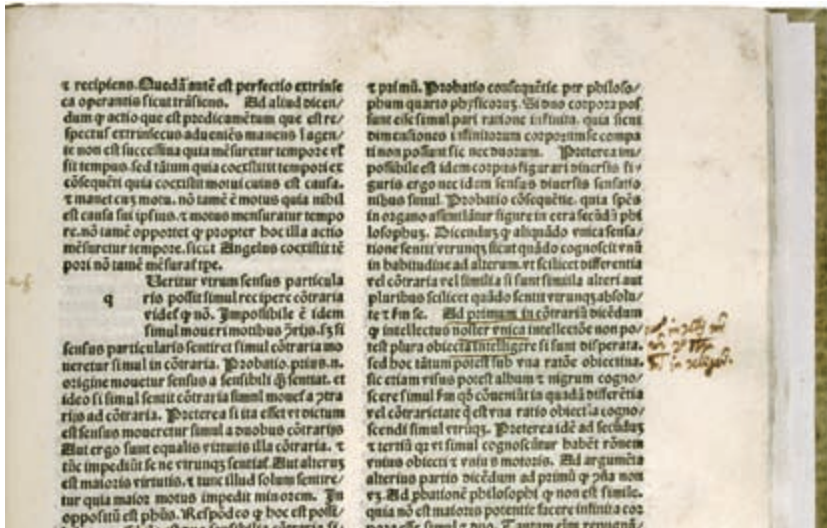 ⁊ recipiens. Quedā autē est perfectio extrinse
ca operantis sicut trāsiens. Ad aliud dicen/
dum ꝙ actio que est predicamētum que est re/
spectus extrinsecus adueniēs manens ī agen/
te non est successiua quia mēsuretur tempore vł
sit tempus. sed tātum quia coexistit tempori ex
cōsequēti quia coexistit motui cuius est causa.
⁊ manet cuȝ motu. nō tamē ē motus quia nihil
est causa sui ipsius. ⁊ motus mensuratur tempo
re. nō tamē opportet ꝙ propter hoc illa actio
mēsuretur tempore. sicut Angelus coexistit tē
pori nō tamē mēsuraṫ tpe.
q Ueritur vtrum sensus particula
ris possit simul recipere cōtraria
videṫ ꝙ nō. Impossibile ē idem
simul moueri motibus ꝯrijs. sȝ si
sensus particularis sentiret simul cōtraria mo
ueretur simul in cōtraria. Probatio. prius. n.
origine mouetur sensus a sensibili ꝙ̄ sentiat. et
ideo si simul sentit cōtraria simul moueṫ a ꝯtra
rijs ad cōtraria. Preterea si ita esset vt dictum
est sensus moueretur simul a duobus cōtrarijs
Aut ergo sunt equalis virtutis illa cōtraria. ⁊
tūc impediūt se ne vtrunqȝ sentiaṫ. Aut alteruȝ
est maioris virtutis. ⁊ tunc illud solum sentire/
tur quia maior motus impedit minorem. In
oppositū est phūs. Respōdeo ꝙ hoc est possi/
⁊ primū. Probatio consequētie per philoso/
phum quarto physicoruȝ. Si duo corpora pos
sunt esse simul pari ratione infinita. quia sicut
dimensiones infinitorum corporum se compa
ti non possunt sic nec duorum. Preterea im/
possibile est idem corpus figurari diuersis fi/
guris ergo nec idem sensus diuersis sensatio
nibus simul. Probatio cōsequētie. quia spēs
in organo assimilātur figure in cera secūdū phi
losophuȝ. Dicenduȝ ꝙ aliquādo vnica sensa/
tione sentit vtrunqȝ sicut quādo cognoscit vnū
in habitudine ad alterum. vt scilicet differentia
vel cōtraria vel similia si sunt simila alteri aut
pluribus scilicet quādo sentit vtrunqȝ absolu/
te ⁊ fm se. Ad primum in cōtrariū dicēdum
ꝙ intellectus noster vnica intellectiōe non po/
test plura obiecta intelligere si sunt disperata.
sed hoc tātum potest sub vna ratōe obiectiua.
sic etiam visus potest album ⁊ nigrum cogno/
scere simul fm qȝ cōueniūt in quadā differētia
vel cōtrarietate ꝗ est vna ratio obiecti a cogno/
scendi simul vtruqȝ. Preterea idē ad secūduȝ
⁊ tertiū qȝ vt simul cognoscūtur habēt rōnem
vnius obiecti ⁊ vnius motoris. Ad argumēta
alterius partis dicēdum ad primū ꝙ ꝯña non
vȝ. Ad ꝓbationē philosophi ꝙ non est simile.
quia nō est maioris potentie facere infinita cor